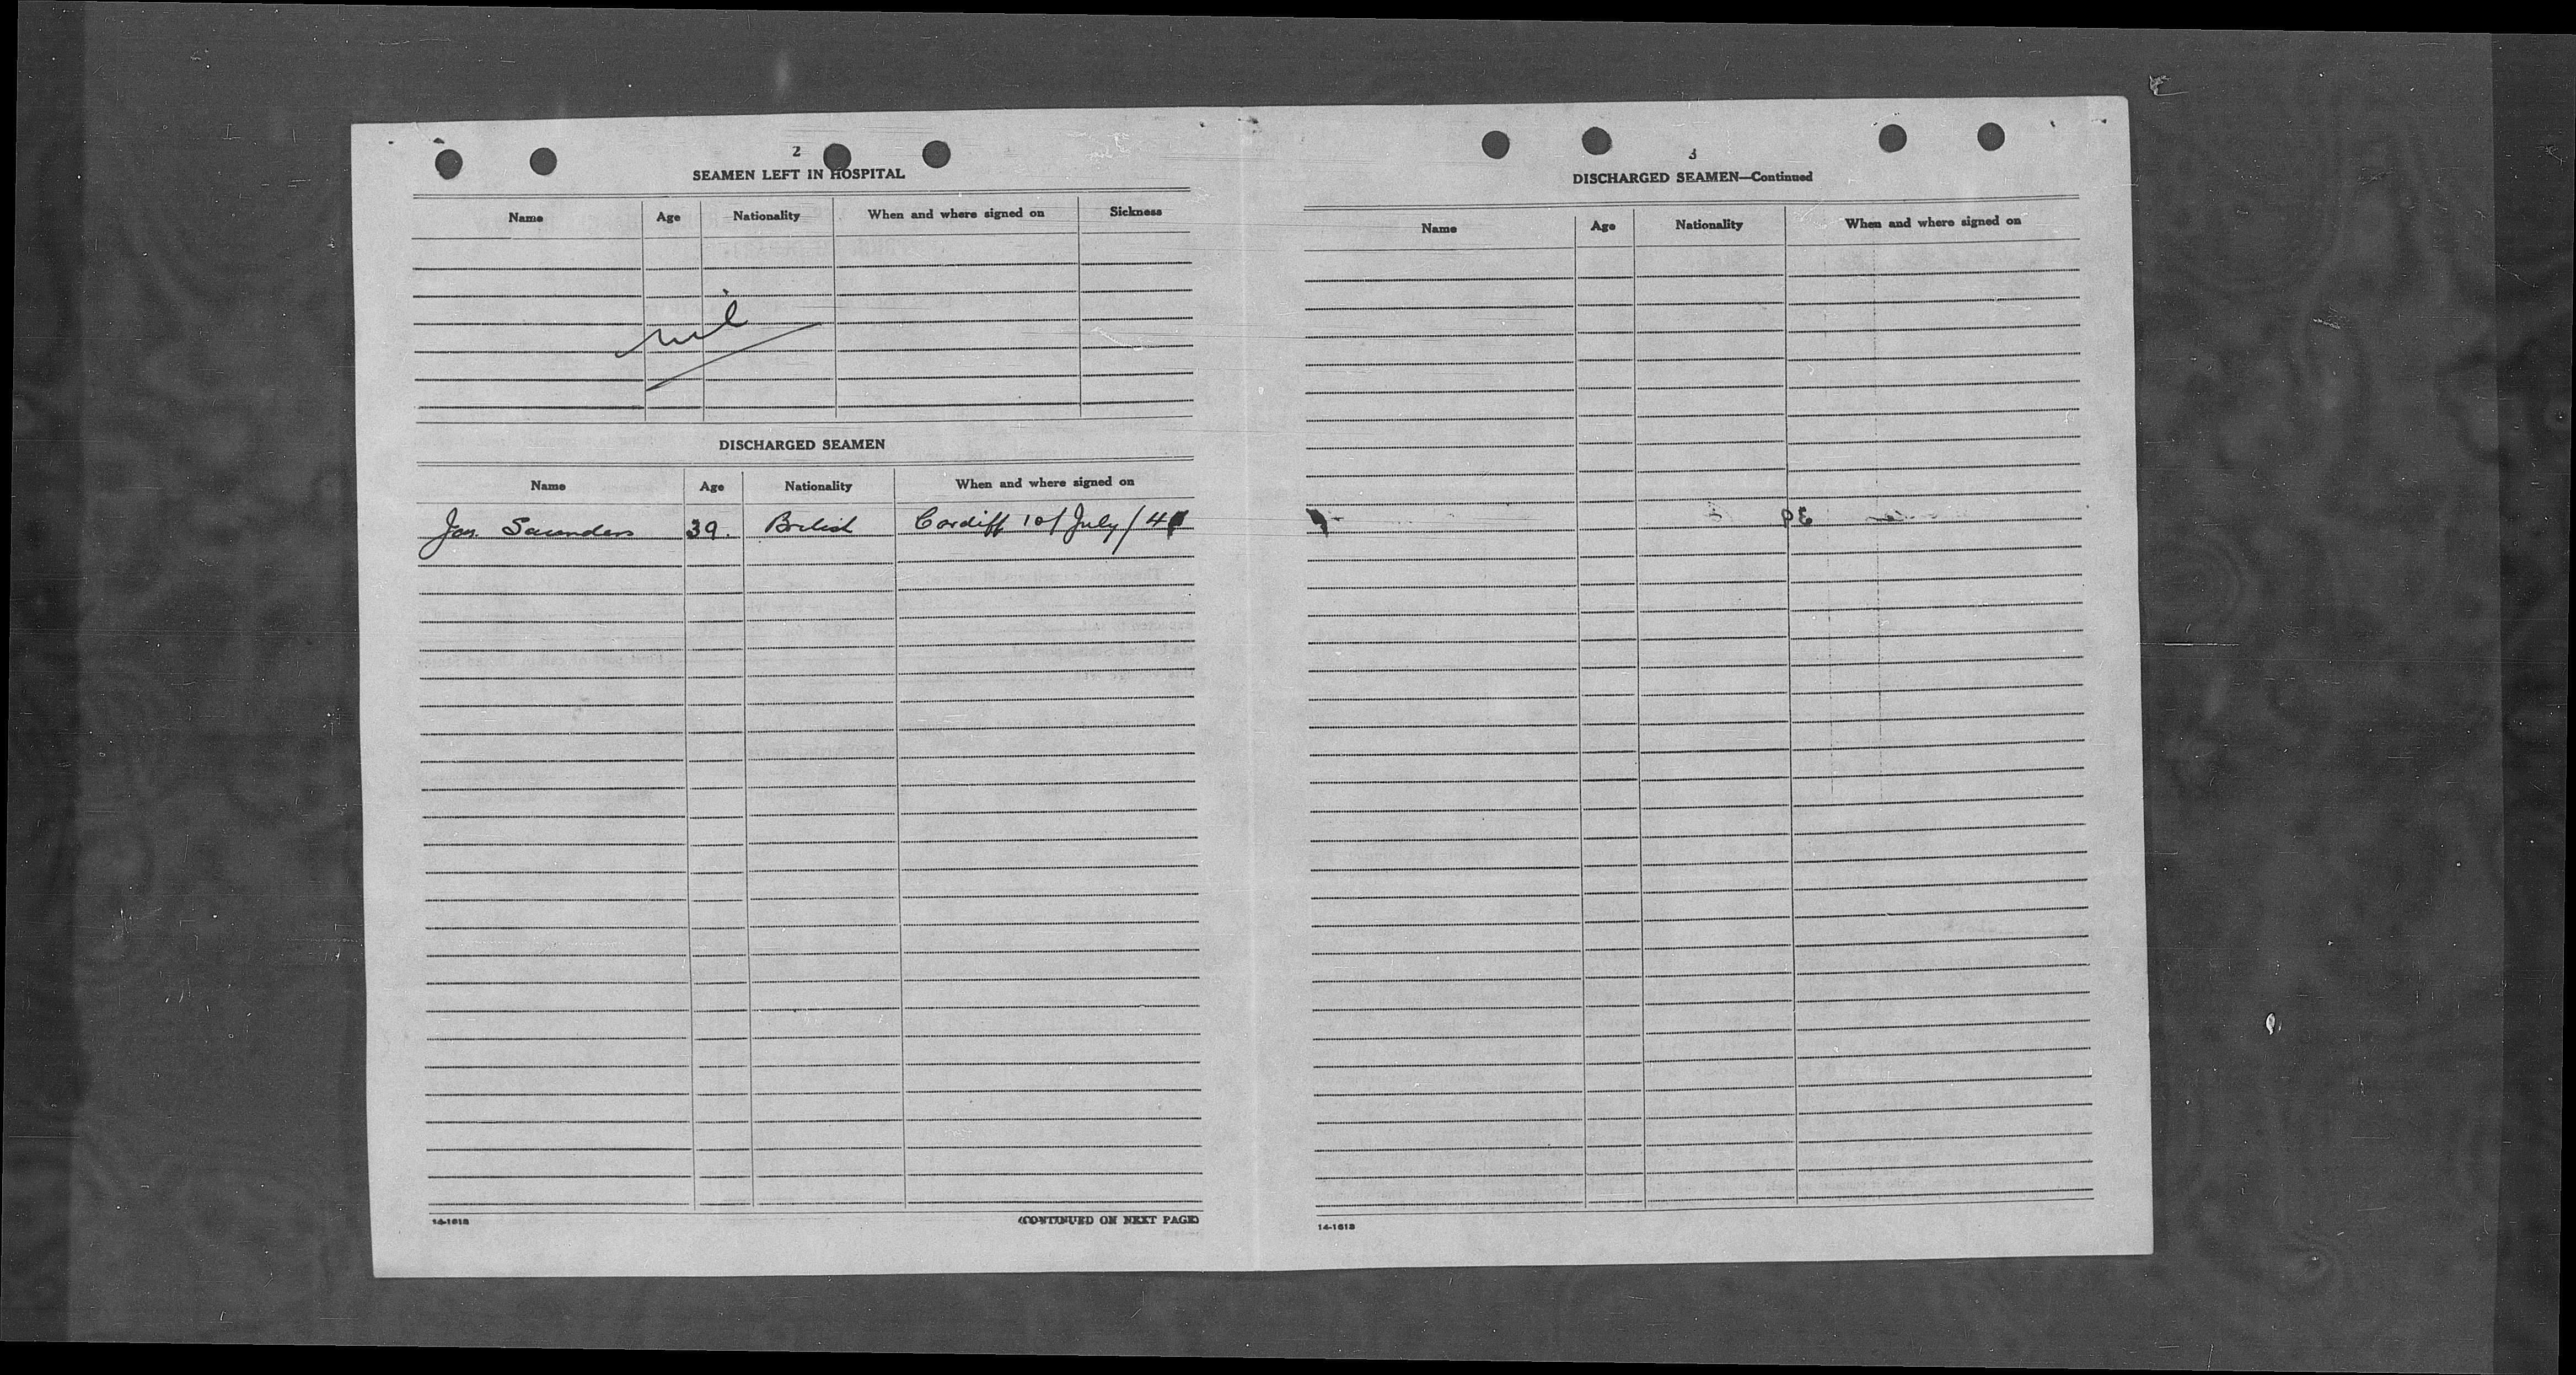 2
SEAMEN LEFT IN HOSPITAL
Name Age Nationality When and where signed on Sickness
nil
DISCHARGED SEAMEN
Name Age Nationality When and where signed on
Jas. Saunders 39. British Cardiff 10/July/
14-1618
(CONTINUED ON NEXT PAGE)
3
DISCHARGED SEAMEN—Continued
Name Age Nationality When and where signed on
14-1618